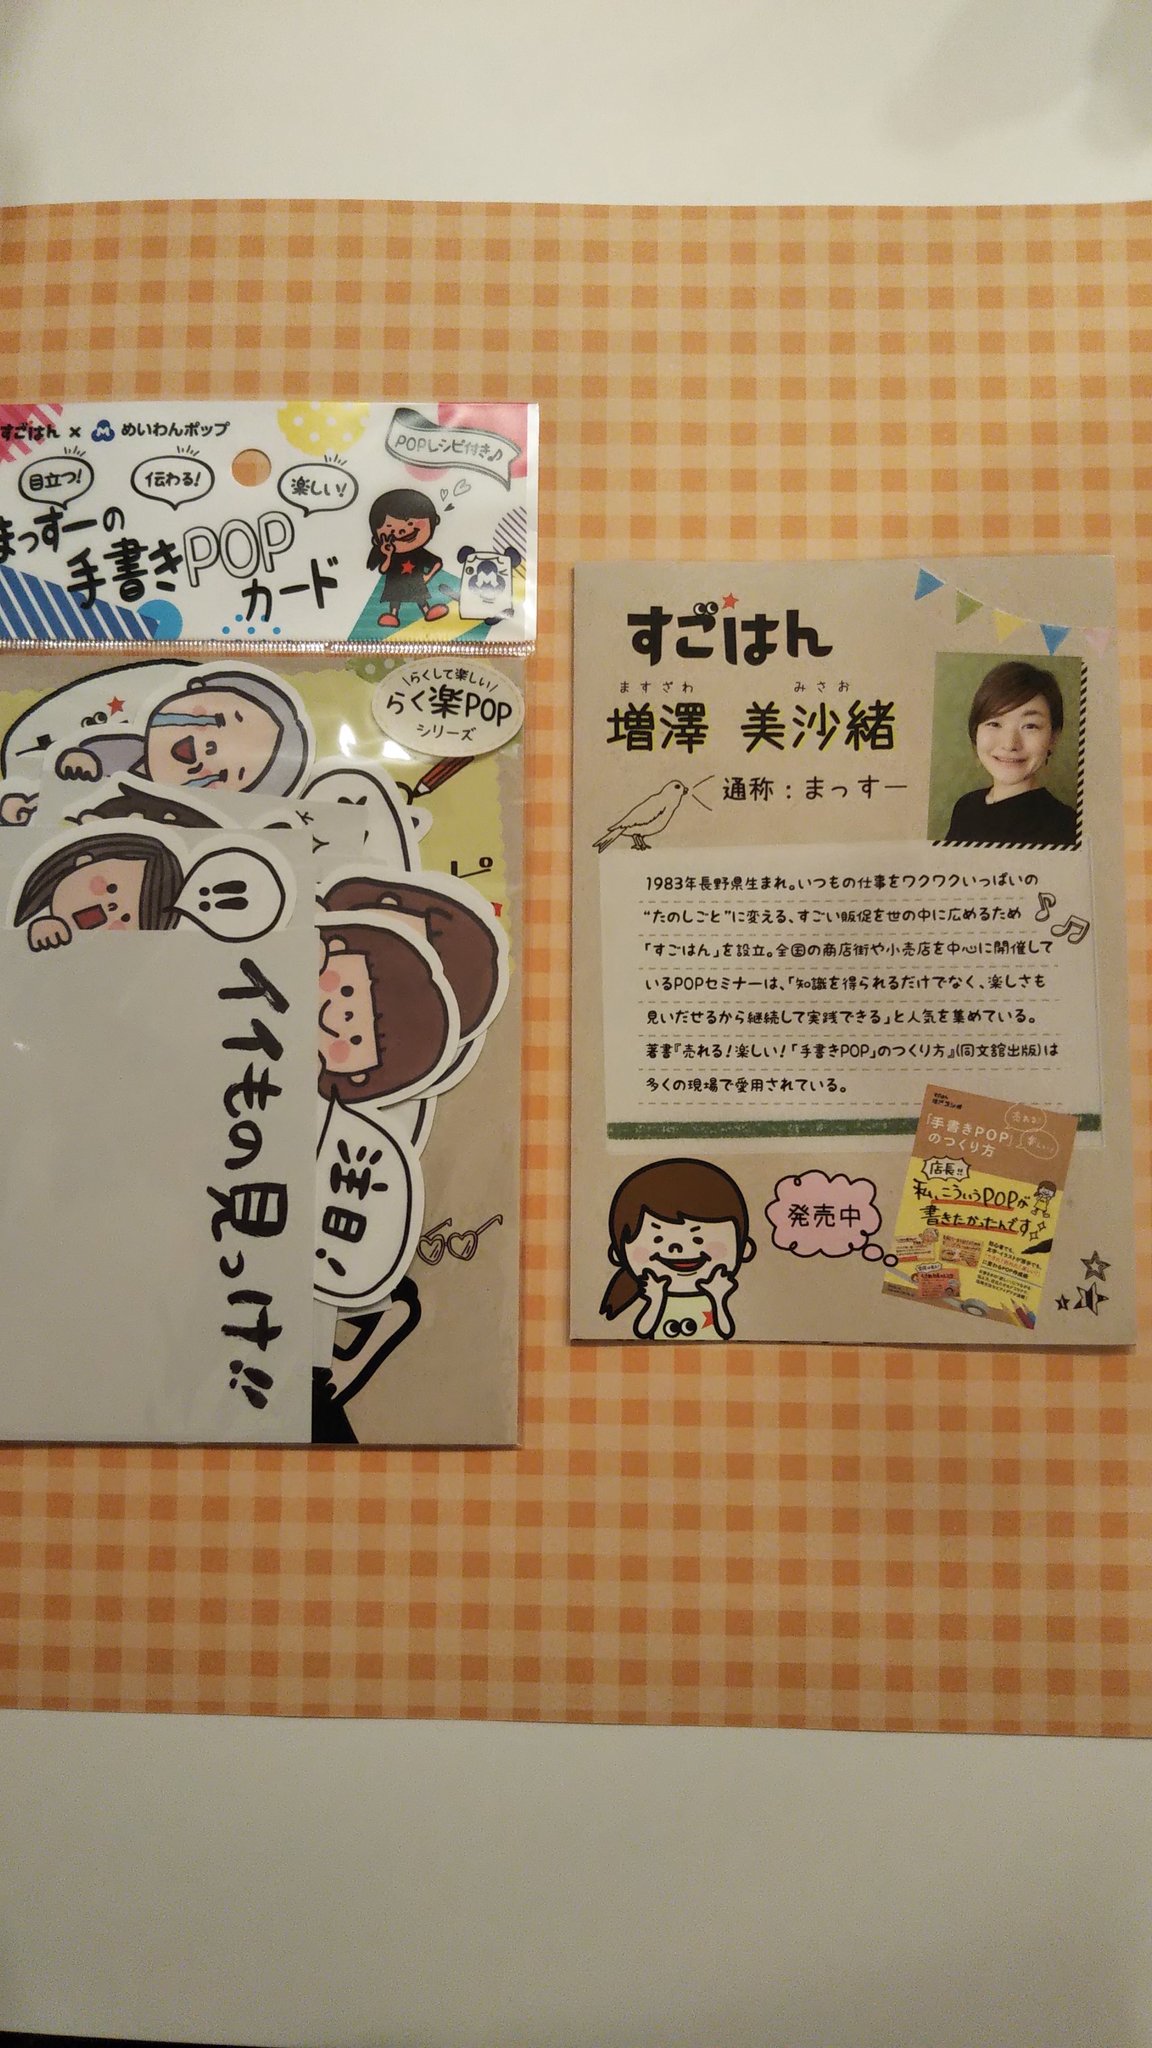 すごはん × M めいわんポップ
POPレシピ付き♪
目立つ! 伝わる! 楽しい!
まっすーの
手書きPOP
カード
らくして楽しい
らく楽POP
シリーズ
!!
イイもの見っけ!!
注目!
すごはん
ますざわ みさお
増澤 美沙緒
通称:まっすー
1983年長野県生まれ。いつもの仕事をワクワクいっぱいの
“たのしごと”に変える、すごい販促を世の中に広めるため
「すごはん」を設立。全国の商店街や小売店を中心に開催して
いるPOPセミナーは、「知識を得られるだけでなく、楽しさも
見いだせるから継続して実践できる」と人気を集めている。
著書『売れる!楽しい!「手書きPOP」のつくり方』(同文舘出版)は
多くの現場で愛用されている。
発売中
売れる!
楽しい!
「手書きPOP」
のつくり方
店長!!
私、こういうPOPが
書きたかったんです